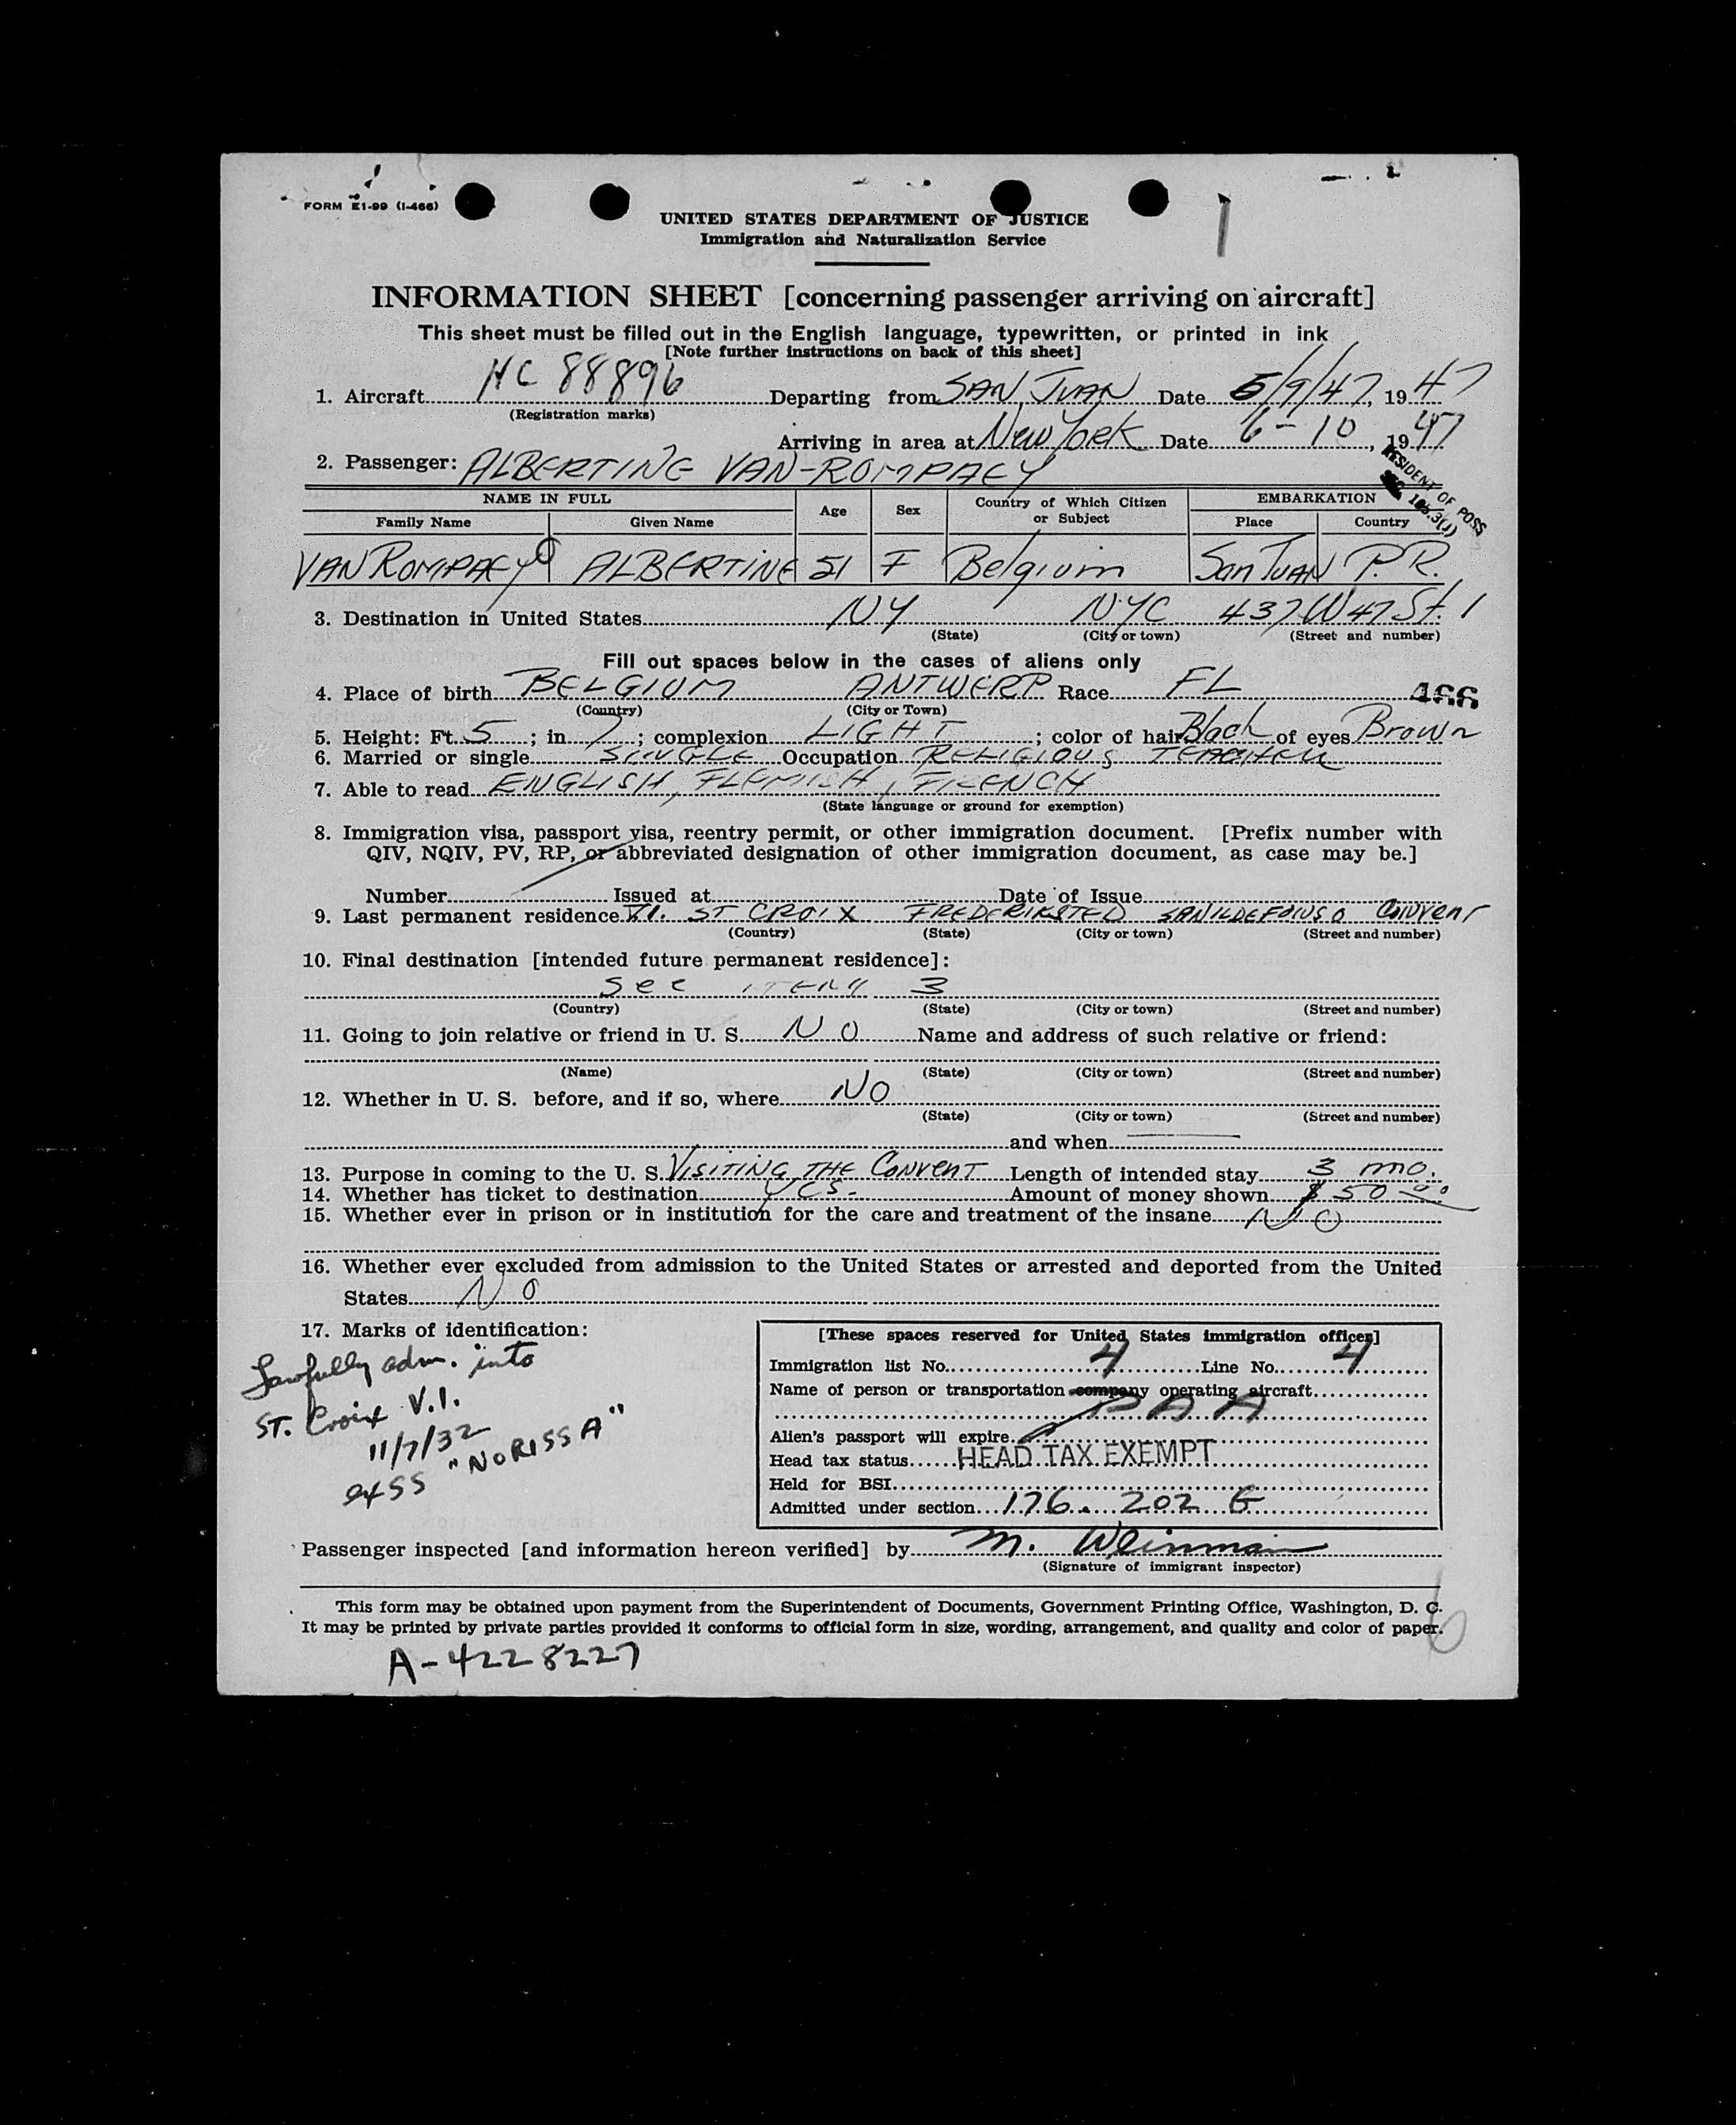 FORM E1-99 (I-466)
UNITED STATES DEPARTMENT OF JUSTICE
Immigration and Naturalization Service
INFORMATION SHEET [concerning passenger arriving on aircraft]
This sheet must be filled out in the English language, typewritten, or printed in ink
[Note further instructions on back of this sheet]
1. Aircraft NC 88896 Departing from SAN JUAN Date 5/9/47, 1947
(Registration marks)
Arriving in area at New York Date 6-10, 1947
2. Passenger: ALBERTINE VAN-ROMPAEY
RESIDENT OF POSS
NAME IN FULL Age Sex Country of Which Citizen or Subject EMBARKATION
Family Name Given Name Place Country
VAN ROMPAEY ALBERTINE 51 F Belgium San JUAN P.R.
3. Destination in United States NY NYC 437 W 47 St.
(State) (City or town) (Street and number)
Fill out spaces below in the cases of aliens only
4. Place of birth BELGIUM ANTWERP Race FL 466
(Country) (City or Town)
5. Height: Ft. 5; in 7; complexion LIGHT; color of hair Black of eyes Brown
6. Married or single SINGLE Occupation RELIGIOUS TEACHER
7. Able to read ENGLISH, FLEMISH, FRENCH
(State language or ground for exemption)
8. Immigration visa, passport visa, reentry permit, or other immigration document. [Prefix number with
QIV, NQIV, PV, RP, or abbreviated designation of other immigration document, as case may be.]
Number Issued at Date of Issue
9. Last permanent residence V.I. ST CROIX FREDERIKSTED SANILDEFONSO Convent
(Country) (State) (City or town) (Street and number)
10. Final destination [intended future permanent residence]:
See ITEM 3
(Country) (State) (City or town) (Street and number)
11. Going to join relative or friend in U. S. NO Name and address of such relative or friend:
(Name) (State) (City or town) (Street and number)
12. Whether in U. S. before, and if so, where NO
(State) (City or town) (Street and number)
and when
13. Purpose in coming to the U. S. VISITING THE CONVENT Length of intended stay 3 mo.
14. Whether has ticket to destination YES- Amount of money shown $50 00
15. Whether ever in prison or in institution for the care and treatment of the insane NO
16. Whether ever excluded from admission to the United States or arrested and deported from the United
States NO
17. Marks of identification:
Lawfully adm. into
ST. Croix V.I.
11/7/32
ex SS "NORISSA"
[These spaces reserved for United States immigration officer]
Immigration list No. 4 Line No. 4
Name of person or transportation company operating aircraft
PAA
Alien's passport will expire
Head tax status HEAD TAX EXEMPT
Held for BSI
Admitted under section 176. 202 G
Passenger inspected [and information hereon verified] by M. Weinman
(Signature of immigrant inspector)
This form may be obtained upon payment from the Superintendent of Documents, Government Printing Office, Washington, D. C.
It may be printed by private parties provided it conforms to official form in size, wording, arrangement, and quality and color of paper.
A-4228227